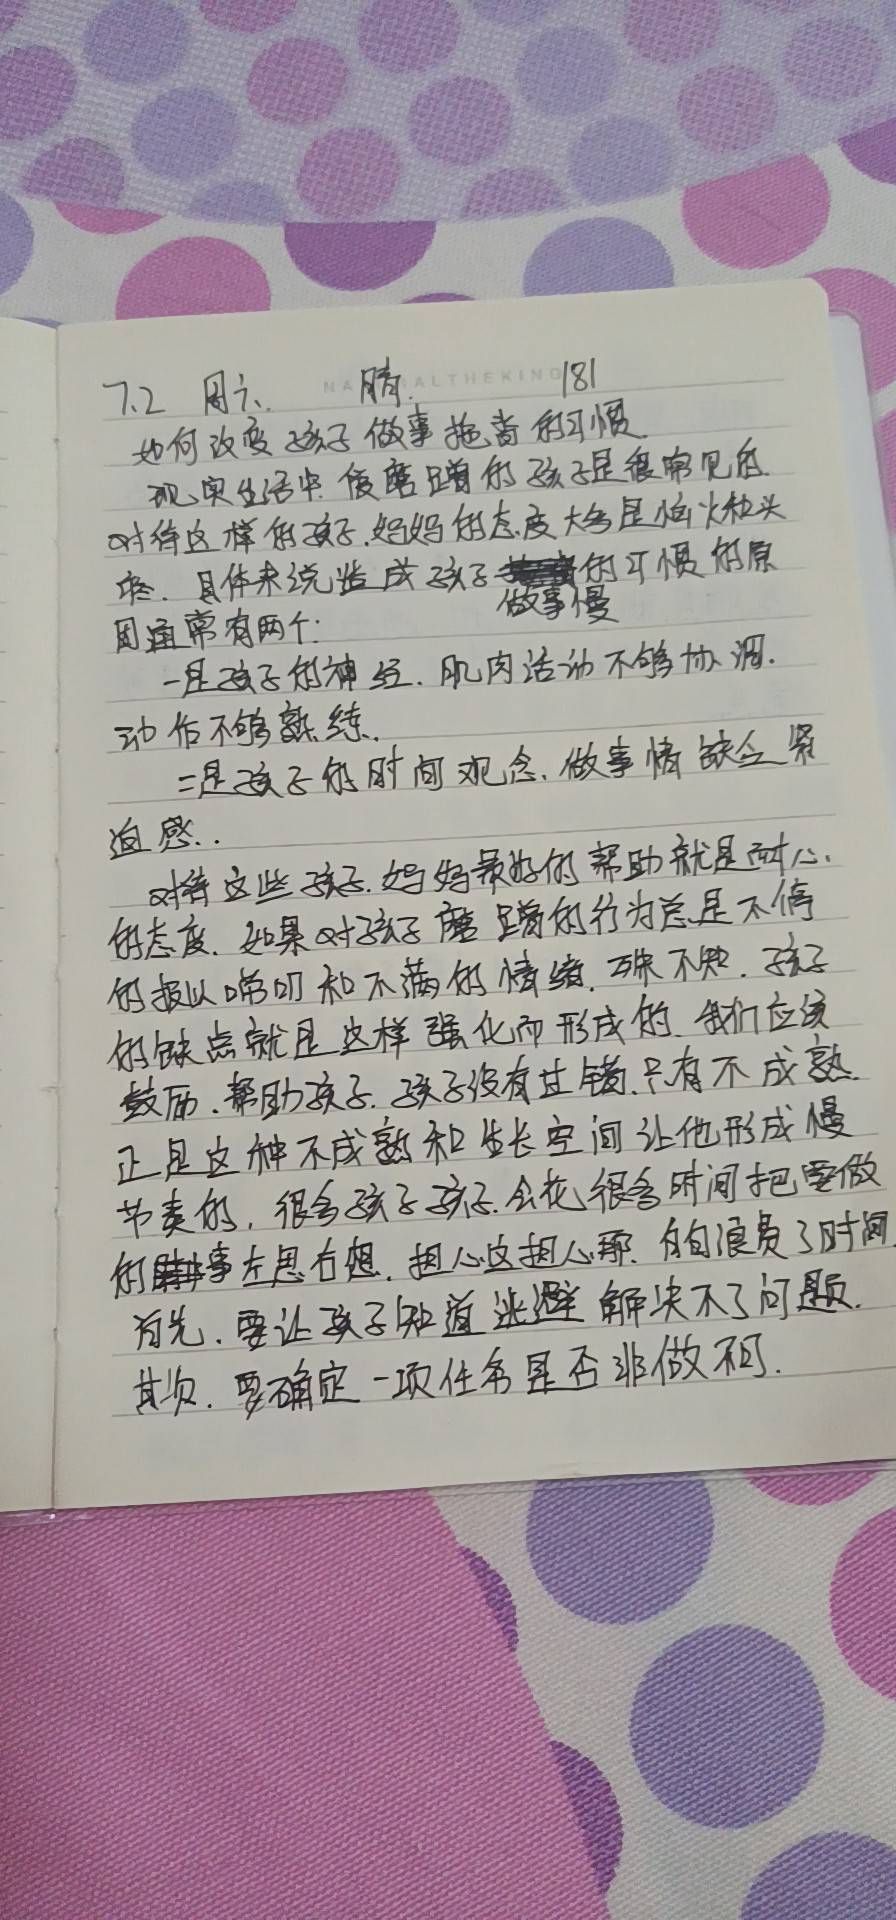 7.2 周六. 晴. 181
NA ALTHEKING
如何改变孩子做事拖沓的习惯.
现实生活中.慢磨蹭的孩子是很常见的.
对待这样的孩子.妈妈的态度大多是恼火和头
疼.具体来说造成孩子做事慢的习惯的原
因通常有两个:
一是孩子的神经.肌肉活动不够协调.
动作不够熟练.
二是孩子的时间观念.做事情缺乏紧
迫感..
对待这些孩子.妈妈最好的帮助就是耐心.
的态度.如果对孩子磨蹭的行为总是不停
的报以唠叨和不满的情绪.殊不知.孩子
的缺点就是这样强化而形成的.我们应该
鼓励.帮助孩子.孩子没有过错.只有不成熟.
正是这种不成熟和生长空间让他形成慢
节奏的,很多孩子孩子.会花很多时间把要做
的事左思右想.担心这担心那.白白浪费了时间.
首先.要让孩子知道逃避解决不了问题.
其次.要确定一项任务是否非做不可.